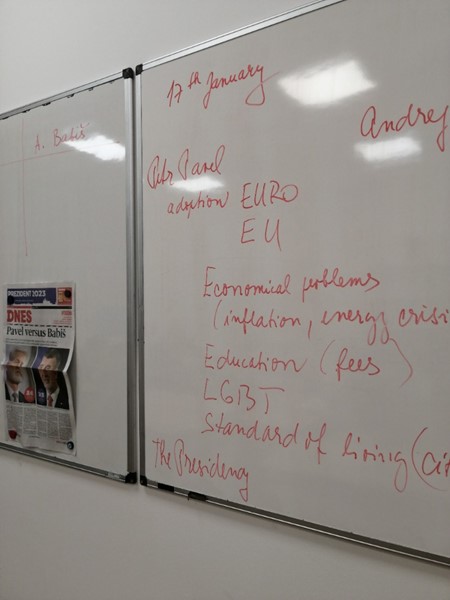 A. Babiš
PREZIDENT 2023
DNES
Pavel versus Babiš
17th January
Andrej
Petr Pavel
adoption EURO
EU
Economical problems
(inflation, energy crisi
Education (fees)
LGBT
Standard of living (cit
The Presidency